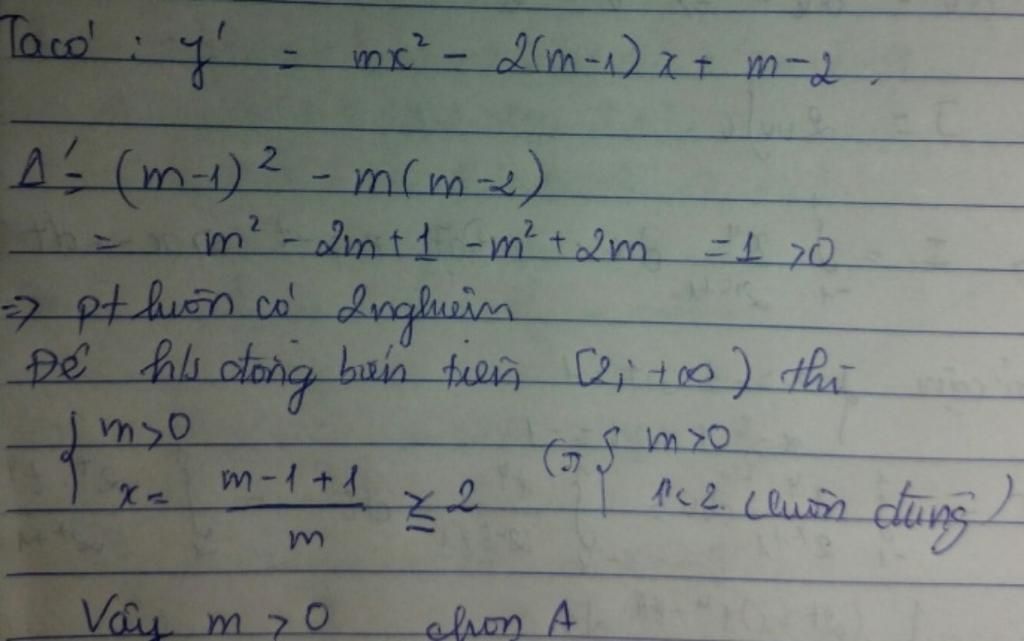 Ta có : y' = mx² - 2(m-1)x + m-2.
Δ' = (m-1)² - m(m-2)
= m² - 2m + 1 - m² + 2m = 1 > 0
=> pt luôn có 2 nghiệm
Để h/s đồng biến trên [2; +∞) thì
{ m > 0 (=) { m > 0
x = (m-1+1)/m 2 1 < 2 (luôn đúng)
Vậy m > 0 chọn A